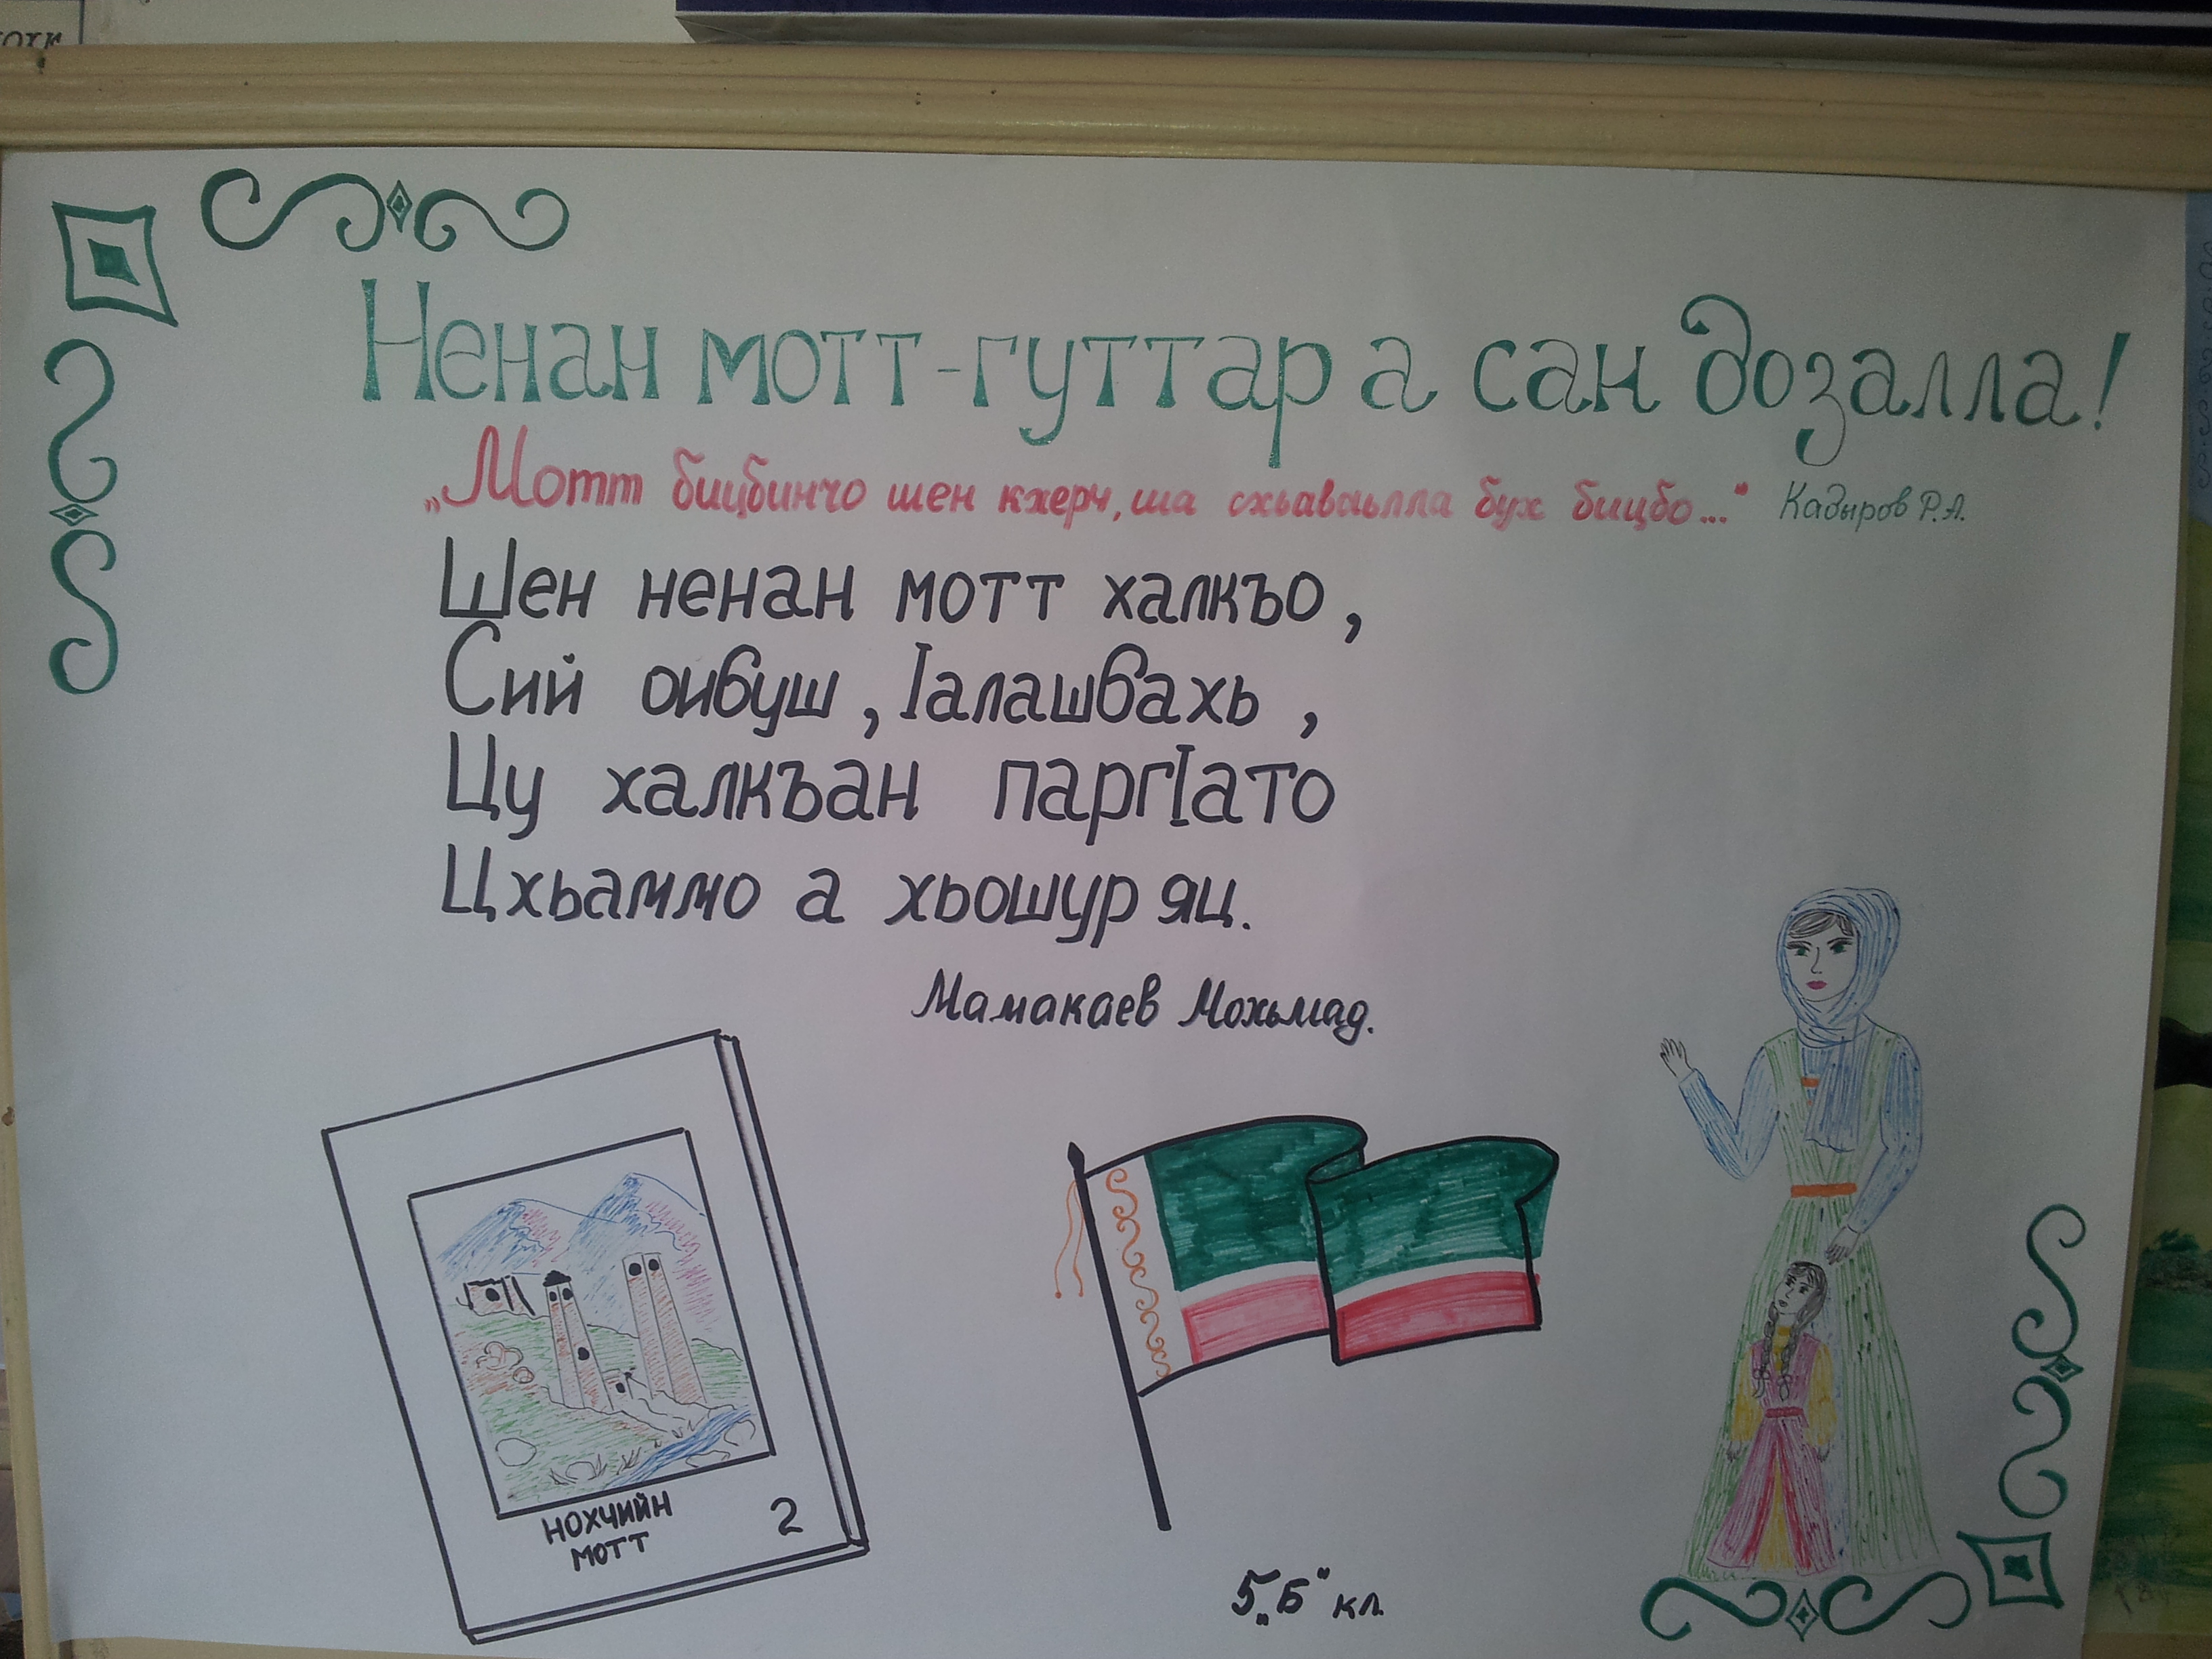 Ненан мотт-гуттар а сан дозалла!
„Мотт бицбинчо шен кхерч, ша схьаваьлла бух бицбо..." Кадыров Р.А.
Шен ненан мотт халкъо,
Сий оибуш, Iалашбахь,
Цу халкъан паргIато
Цхьаммо а хьошур яц.
Мамакаев Мохьмад.
НОХЧИЙН
МОТТ
2
5„Б" кл.